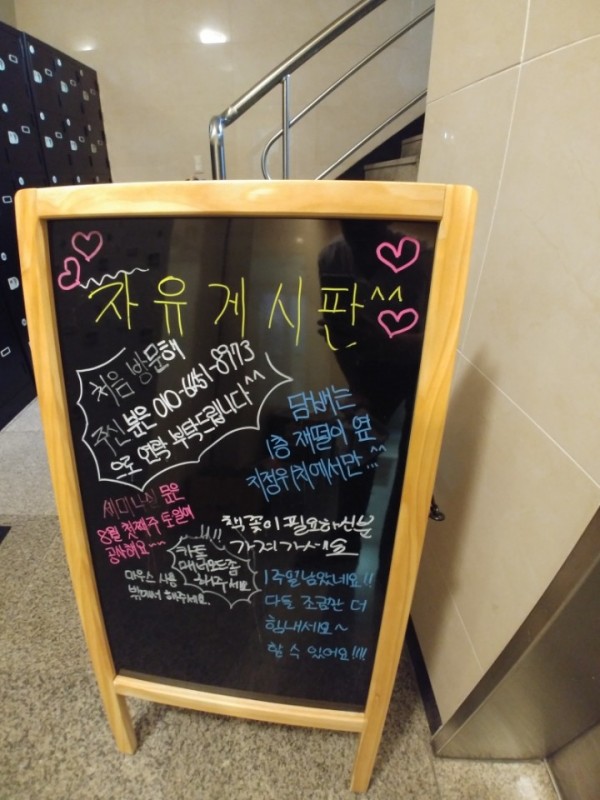 자유게시판^^
처음 방문해
주신 분은 010-6451-8973
으로 연락 부탁드립니다^^
담배는
1층 재떨이 옆
지정위치에서만^^
세미나실 문은
8월 첫째주 토요일에
공사해요~~
책꽂이 필요하신분
가져가세요
!!!
카톡
매너모드좀
해주세요
마우스 사용
밖에서 해주세요.
1주일남았네요!!
다들 조금만 더
힘내세요~
할 수 있어요!!!!